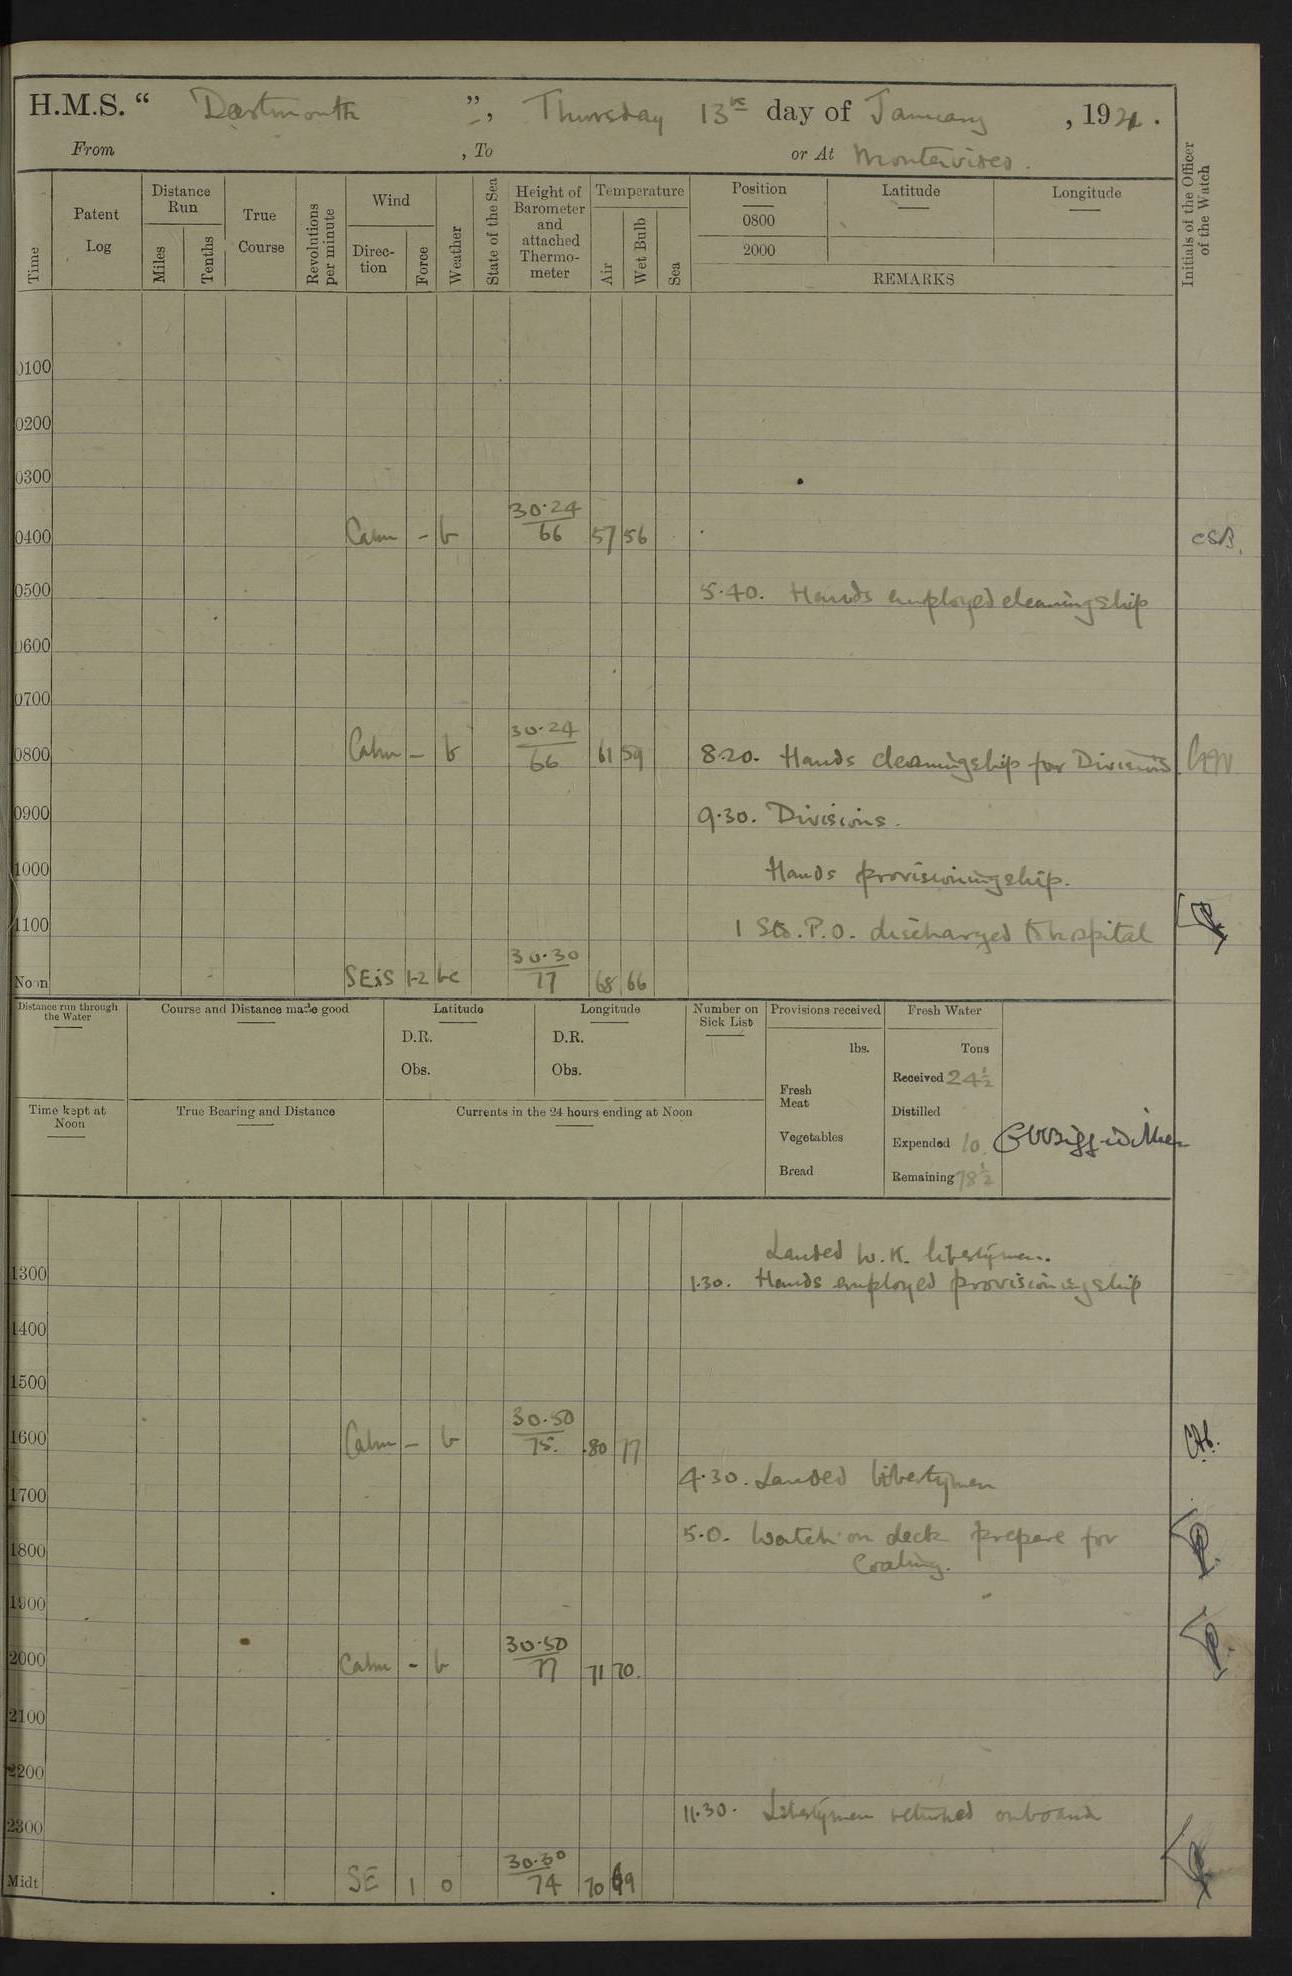 H.M.S. “ Dartmouth ”, Thursday 13th day of January , 1921 .
From , To or At Montevideo .
Time
Patent Log
Distance Run
Miles
Tenths
True Course
Revolutions per minute
Wind
Direc-tion
Force
Weather
State of the Sea
Height of Barometer and attached Thermo-meter
Temperature
Air
Wet Bulb
Sea
Position Latitude Longitude
0800
2000
REMARKS
Initials of the Officer of the Watch
0100
0200
0300
0400 Calm - b 30.24/66 57 56 CSB.
0500 5.40. Hands employed cleaning ship
0600
0700
0800 Calm - b 30.24/66 61 59 8.20. Hands cleaning ship for Divisions
0900 9.30. Divisions.
1000 Hands provisioning ship.
1100 1 Sto. P.O. discharged to hospital
Noon SExS 1-2 bc 30.30/77 68 66
Distance run through the Water
Course and Distance made good
Latitude
D.R.
Obs.
Longitude
D.R.
Obs.
Number on Sick List
Provisions received
lbs.
Fresh Meat
Vegetables
Bread
Fresh Water
Tons
Received 24½
Distilled
Expended 10.
Remaining 78½
Time kept at Noon
True Bearing and Distance
Currents in the 24 hours ending at Noon
Landed W.K. libertymen.
1300 1.30. Hands employed provisioning ship
1400
1500
1600 Calm - b 30.50/75. 80 77
4.30. Landed libertymen
1700
5.0. Watch on deck prepare for
1800 Coaling.
1900
2000 Calm - b 30.50/77 71 70.
2100
2200
11.30. Libertymen returned onboard
2300
Midt SE 1 o 30.30/74 70 69